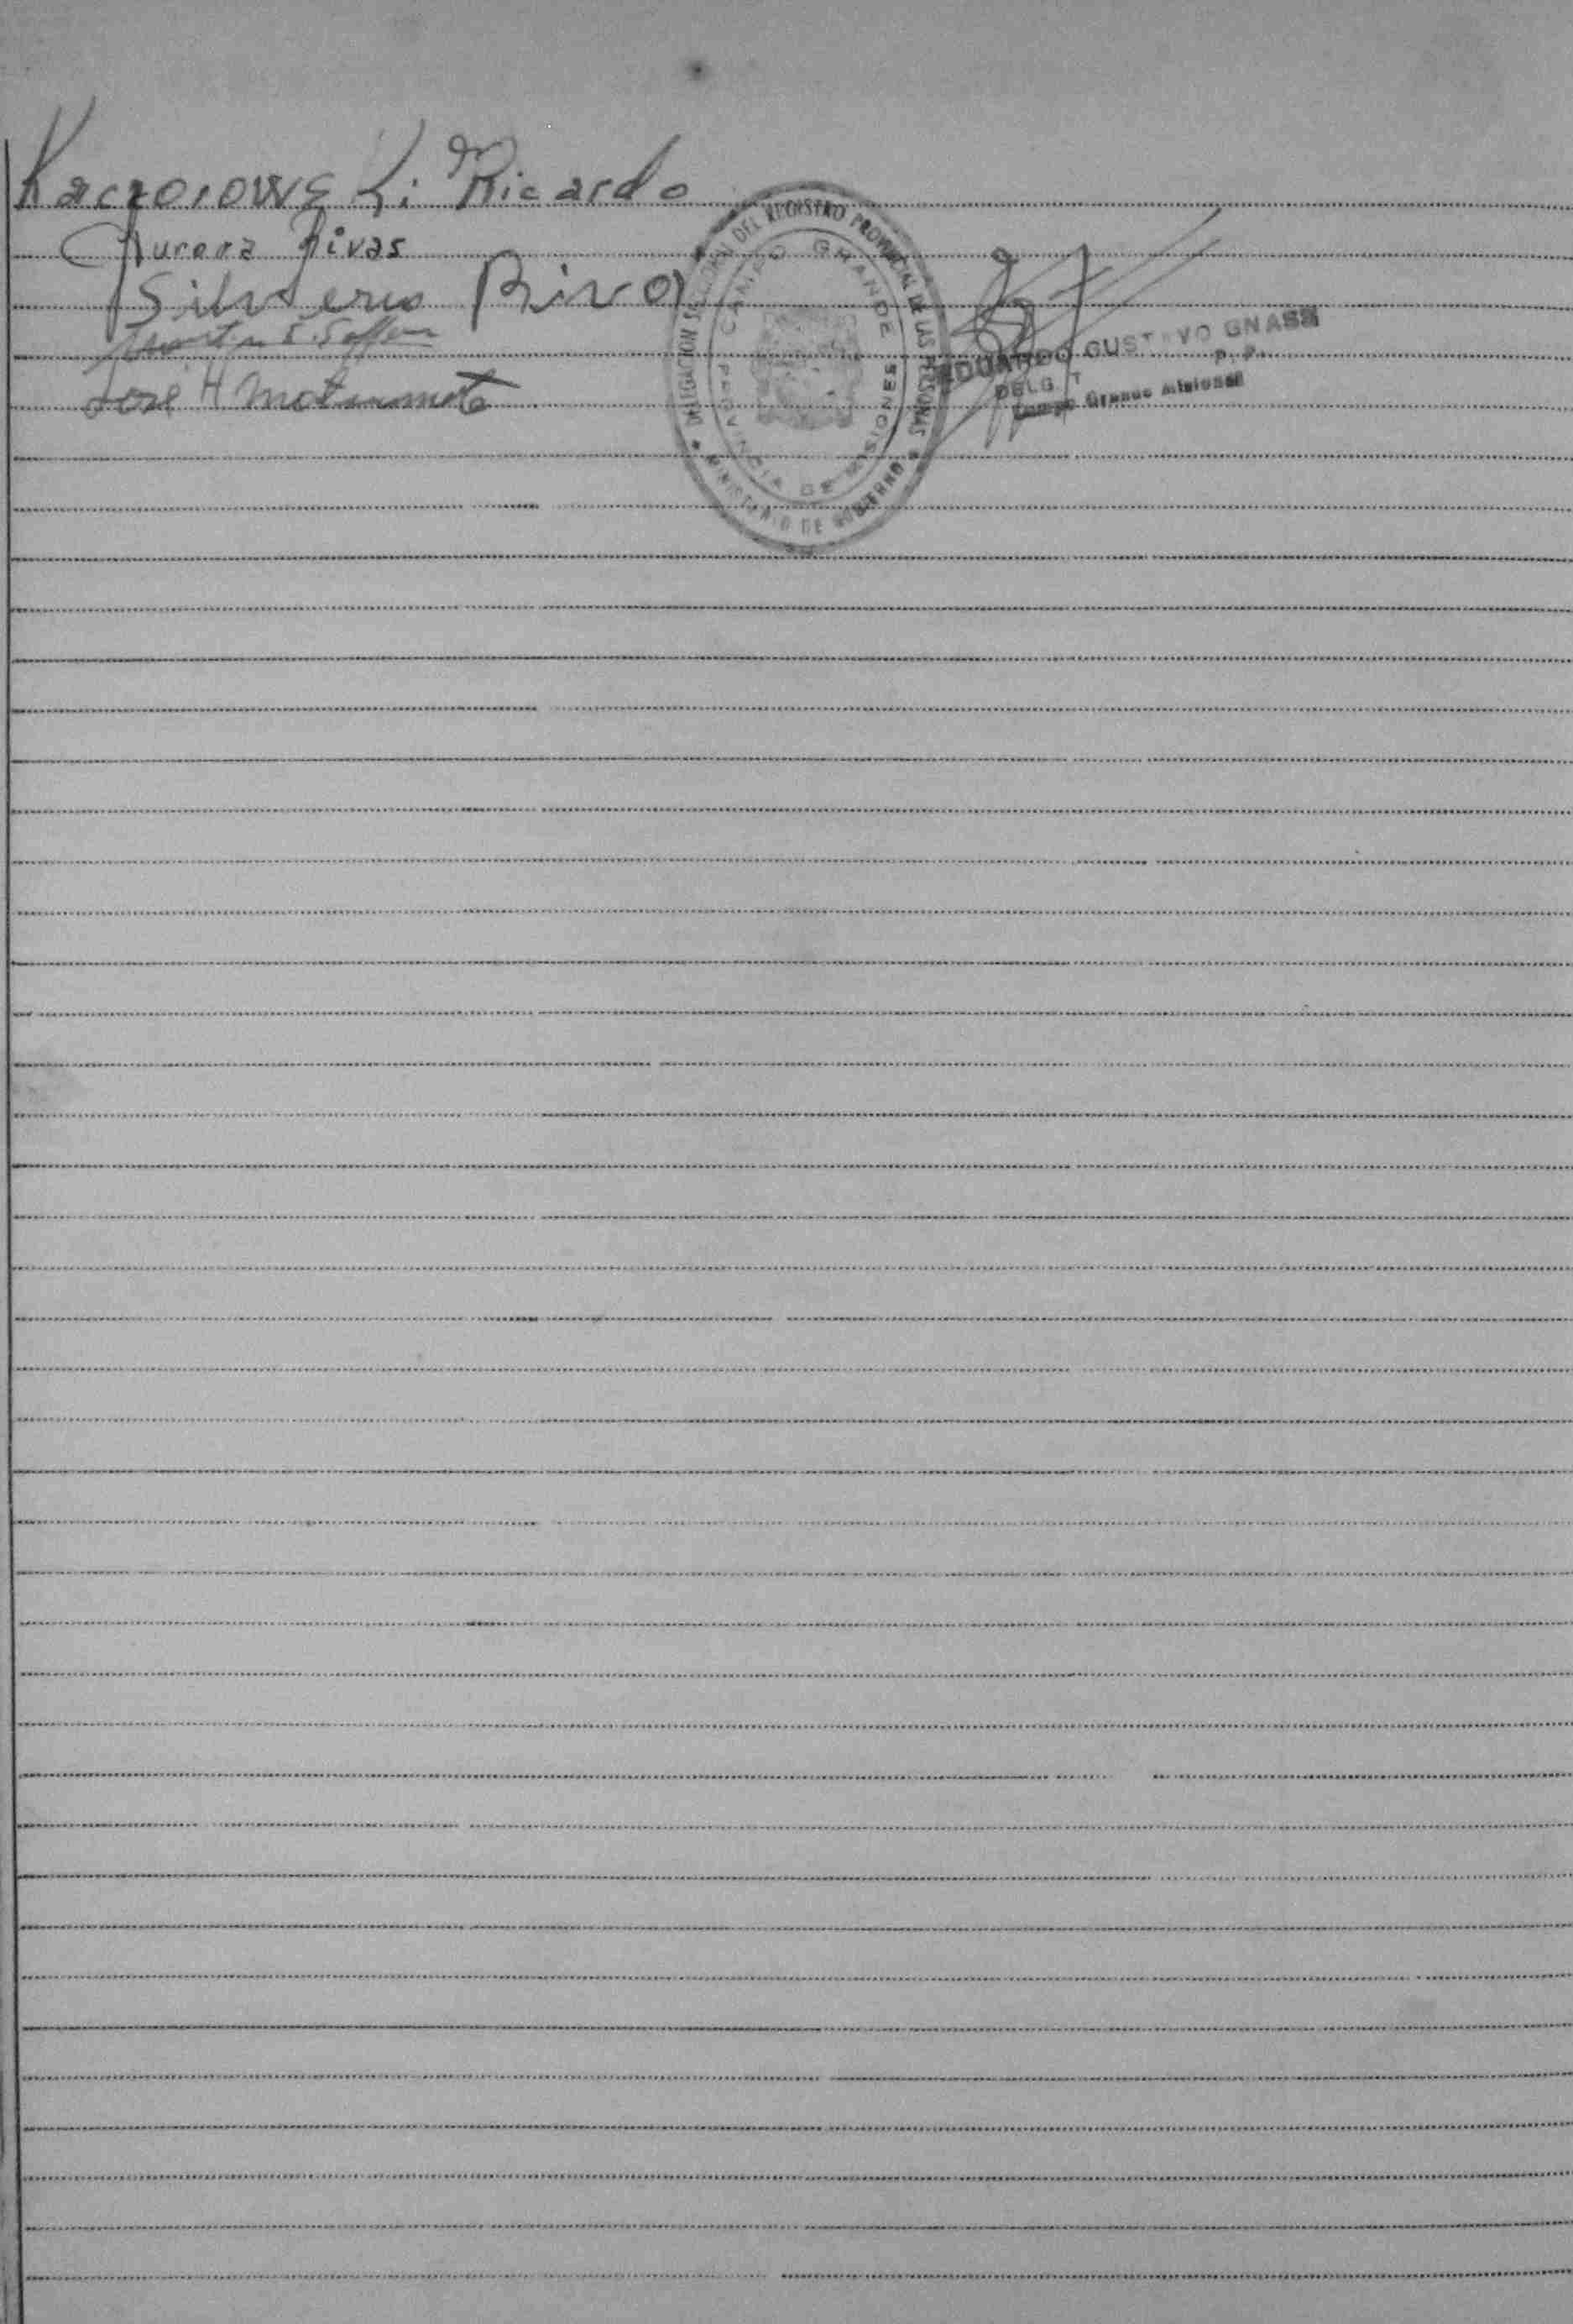 Kaczorowski Ricardo
Aurora Rivas
Silverio Riva
José H
DELEGACION SECCIONAL DEL REGISTRO PROVINCIAL DE LAS PERSONAS
MINISTERIO DE GOBIERNO
CAMPO GRANDE
PROVINCIA DE MISIONES
EDUARDO GUSTAVO GNASS
Campo Grande Misiones